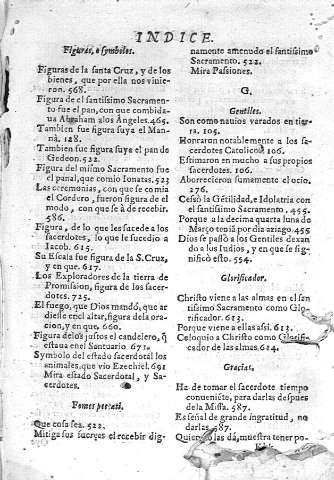 INDICE.
Figuras, o symbolos.
Figuras de la santa Cruz, y de los
bienes, que por ella nos vinie-
ron. 568.
Figura de el santissimo Sacramen-
to fue el pan, con que combida-
ua Abraham a los Angeles. 465.
Tambien fue figura suya el Man-
nà. 128.
Tambien fue figura suya el pan de
Gedeon. 522.
Figura del mismo Sacramento fue
el panal, que comio Ionatas. 523
Las ceremonias, con que se comia
el Cordero, fueron figura de el
modo, con que se à de recibir.
586.
Figura, de lo que les sucede a los
sacerdotes, lo que le sucedio a
Iacob. 615.
Su Escala fue figura de la S. Cruz,
y en que. 617.
Los Exploradores de la tierra de
Promission, figura de los sacer-
dotes. 725.
El fuego, que Dios mandó, que ar
diesse en el altar, figura de la ora-
cion, y en que. 660.
Figura de los justos el candelero, q̃
estaua en el Santuario 671.
Symbolo del estado sacerdotal los
animales, que vio Ezechiel. 691
Mira estado Sacerdotal, y Sa-
cerdotes.
Fomes peccati.
Que cosa sea. 522.
Mitiga sus fuerças el recebir dig-
namente amenudo el santissimo
Sacramento. 522.
Mira Passiones.
G.
Gentiles.
Son como nauios varados en tier-
ra. 105.
Honraron notablemente a los sa-
cerdotes Catolicos 106.
Estimaron en mucho a sus propios
sacerdotes. 106.
Aborrecieron sumamente el ocio.
276.
Cessò la Gẽtilidad, e Idolatria con
el santissimo Sacramento. 455.
Porque a la decima quarta luna de
Março teniã por dia aziago. 455
Dios se passò a los Gentiles dexan
do a los Iudios, y en que se sig-
nificò esto. 554.
Glorificador.
Christo viene a las almas en el san
tissimo Sacramento como Glo-
rificador. 613.
Porque viene a ellas assi. 613.
Coloquio a Christo como Glorifi-
cador de las almas. 614.
Gracias.
Ha de tomar el sacerdote tiempo
conueniẽte, para darlas despues
de la Missa. 587.
Es señal de grande ingratitud, no
darlas. 587.
Quien no las dá, muestra tener po-